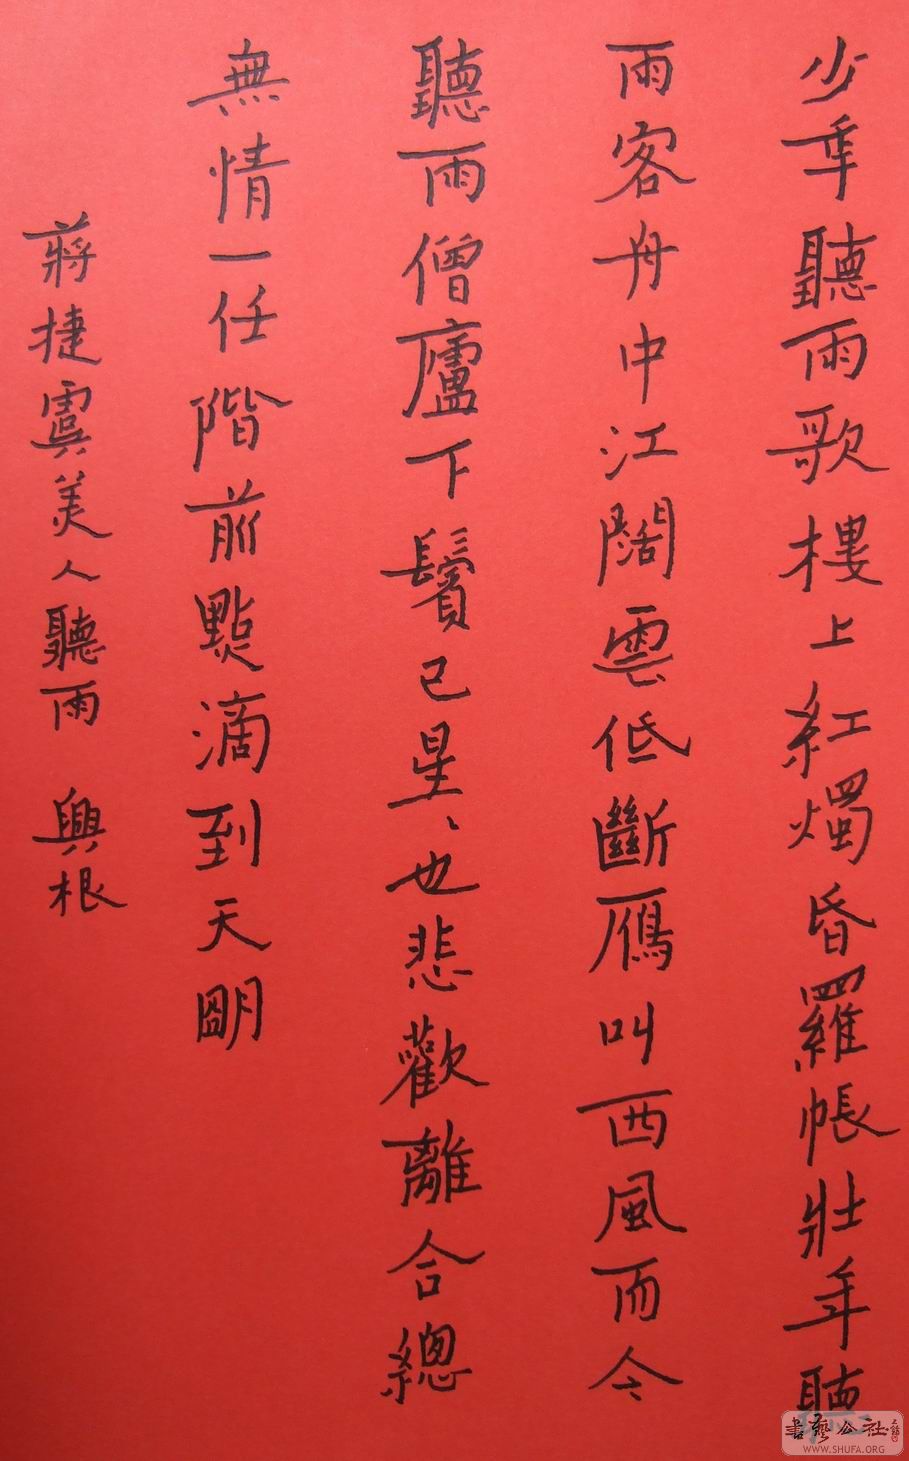 少年聽雨歌樓上紅燭昏羅帳壯年聽
雨客舟中江闊雲低斷雁叫西風而今
聽雨僧廬下鬢已星、也悲歡離合總
無情一任階前點滴到天明
蔣捷虞美人聽雨 興根
書藝公社
WWW.SHUFA.ORG